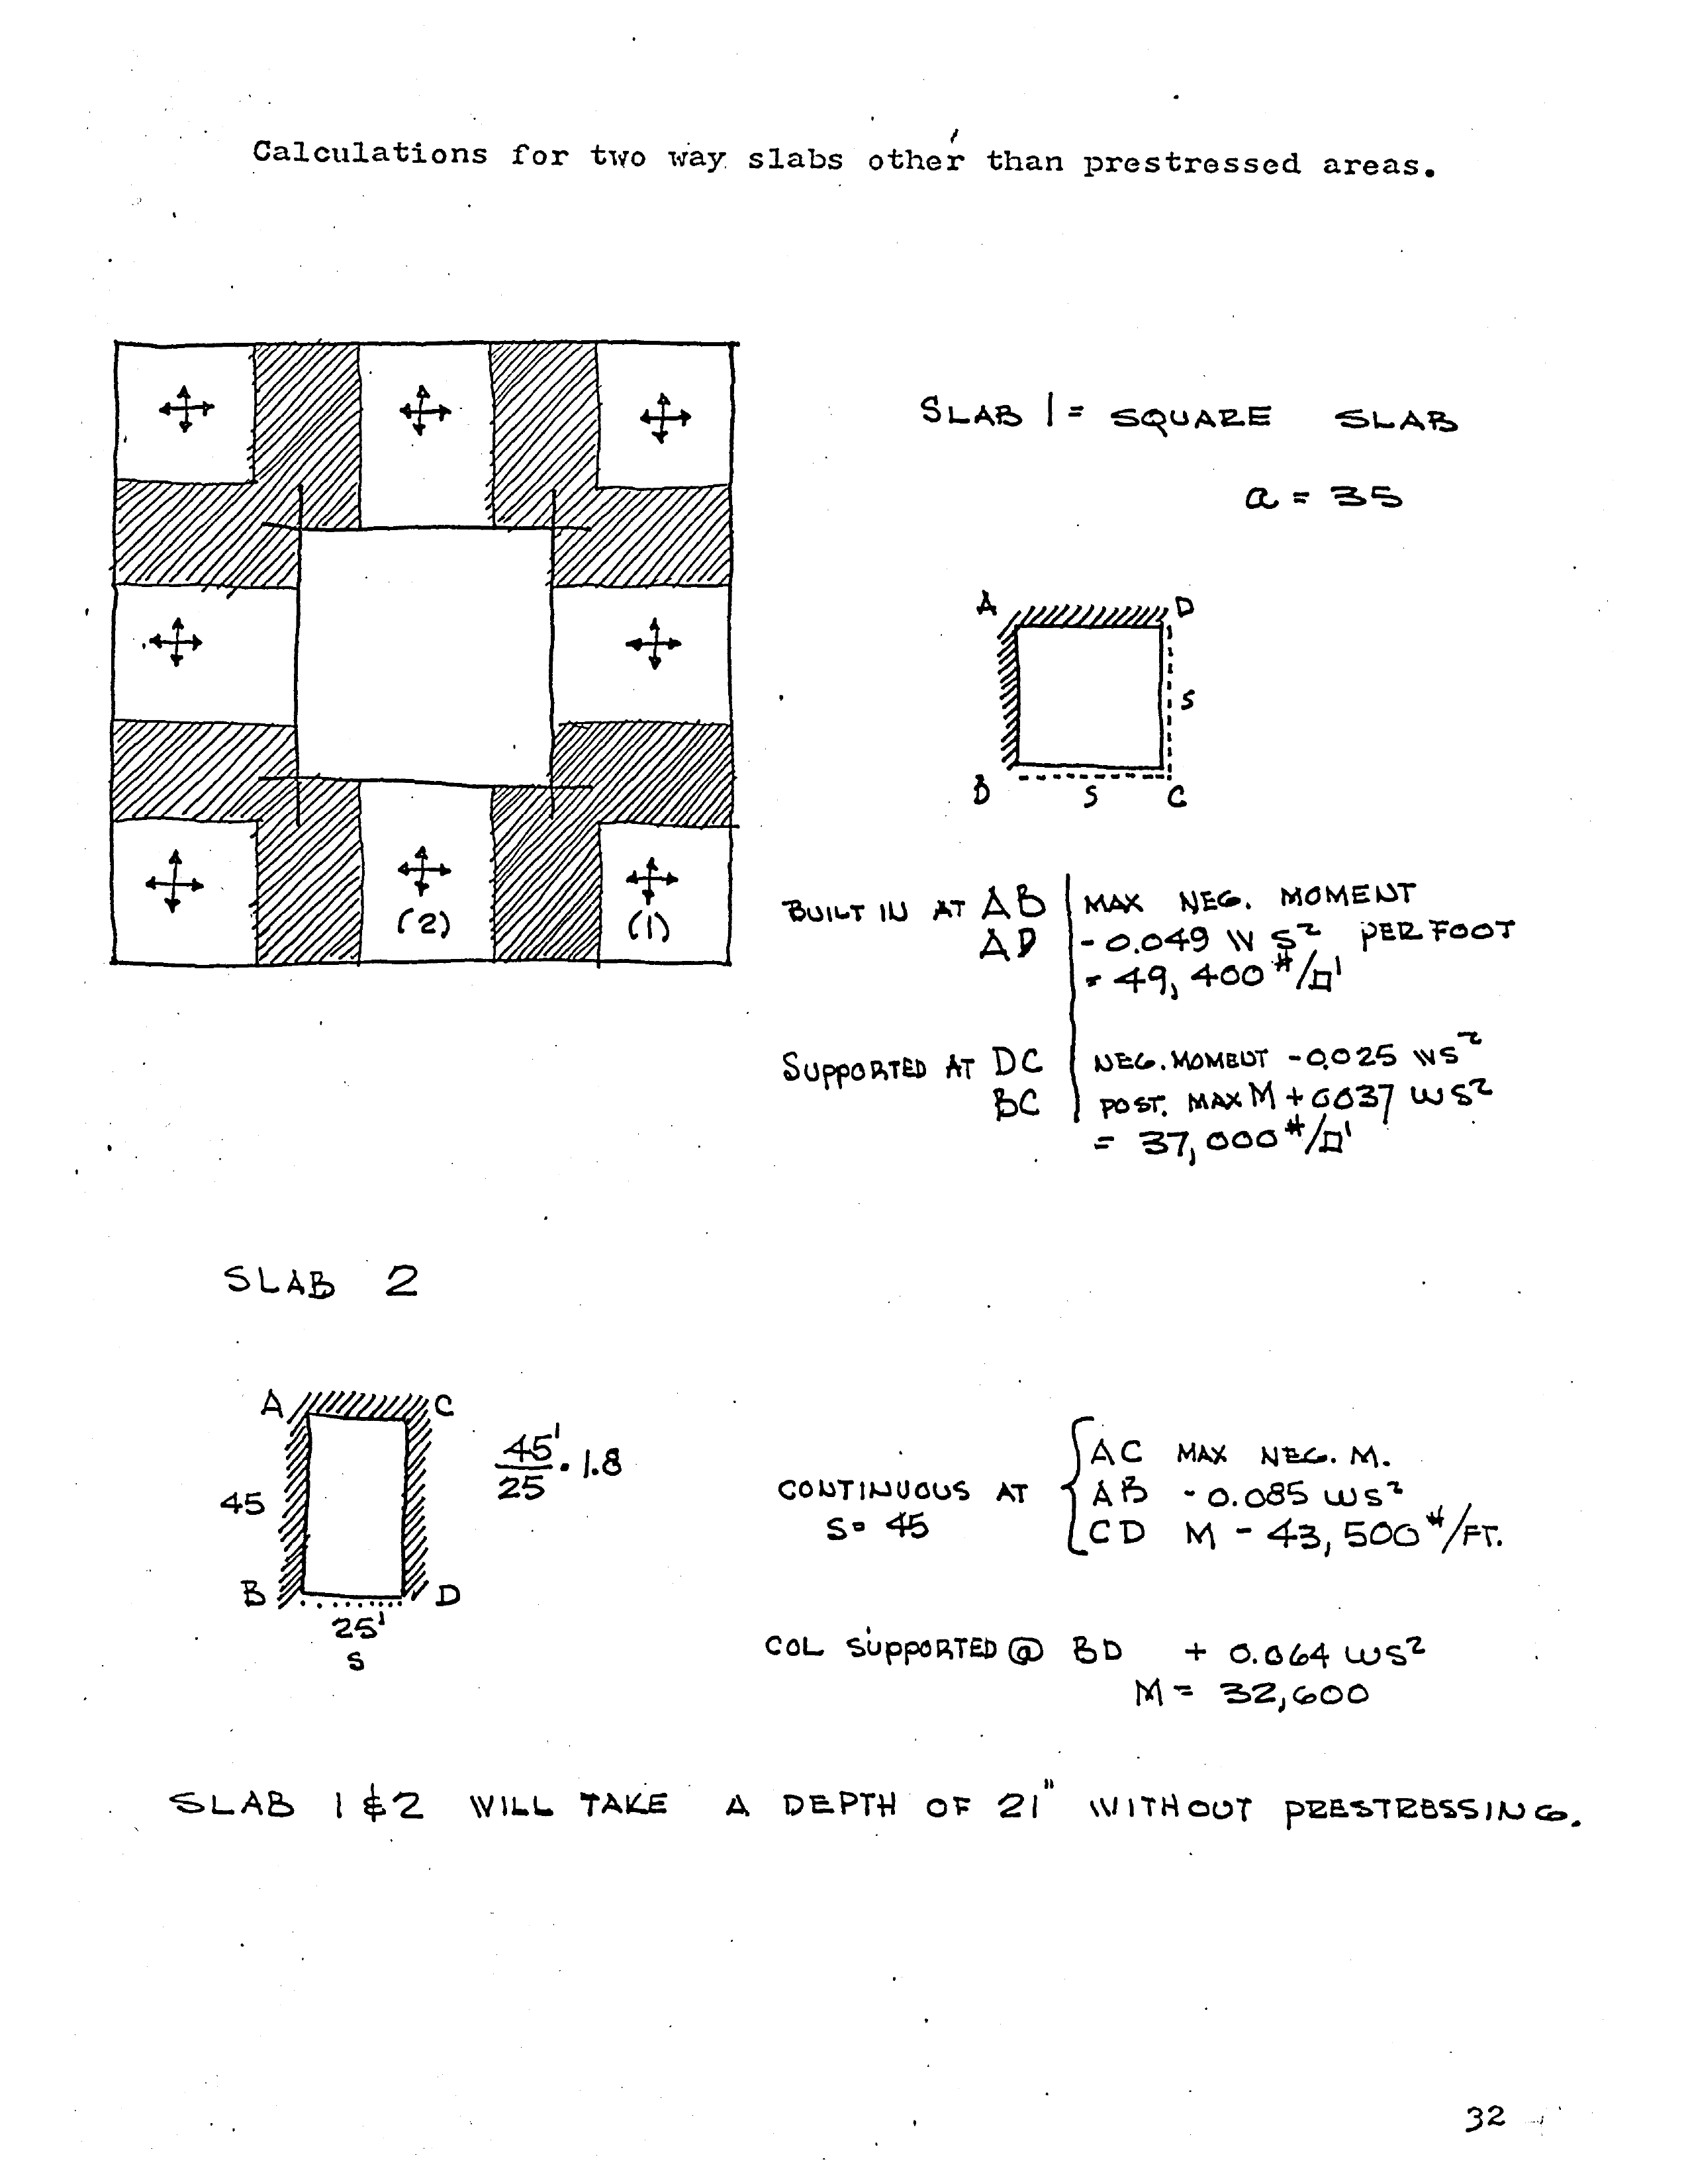 Calculations for two way slabs other than prestressed areas.
SLAB 1 = SQUARE SLAB
a = 35
A D
S
B S C
(2) (1)
BUILT IN AT AB MAX NEG. MOMENT
AD - 0.049 W S² PER FOOT
= 49,400 #/□'
SUPPORTED AT DC NEG. MOMENT - 0.025 WS²
BC POST. MAX M + 0037 WS²
= 37,000 #/□'
SLAB 2
A C
45'/25 . 1.8
45
B D
25'
S
CONTINUOUS AT AC MAX NEG. M.
S = 45 AB - 0.085 WS²
CD M - 43,500 #/FT.
COL SUPPORTED @ BD + 0.064 WS²
M = 32,600
SLAB 1 & 2 WILL TAKE A DEPTH OF 21" WITHOUT PRESTRESSING.
32